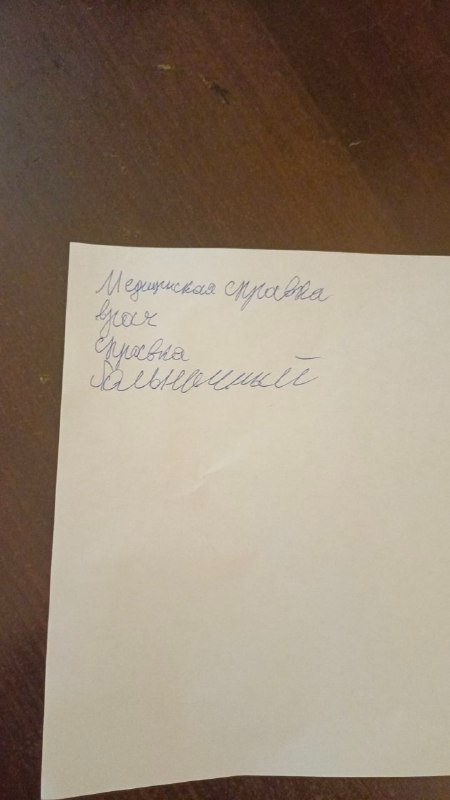 Медицинская справка
врач
справка
больничный